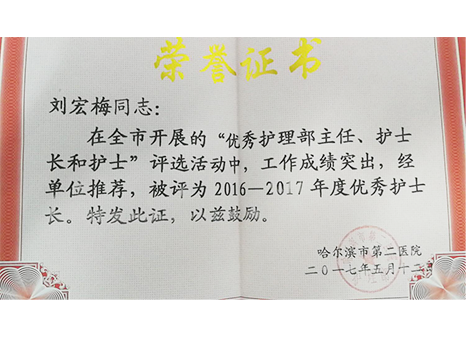 荣誉证书
刘宏梅同志：
在全市开展的“优秀护理部主任、护士
长和护士”评选活动中，工作成绩突出，经
单位推荐，被评为2016—2017年度优秀护士
长。特发此证，以兹鼓励。
哈尔滨市第二医院
二〇一七年五月十二